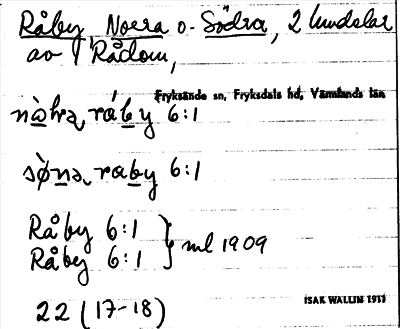 Råby, Norra o. Södra, 2 lundelar
av Rådom,
Fryksände sn, Fryksdals hd, Värmlands län
nàhra, ráby 6:1
sø̀na, raby 6:1
Råby 6:1
Råby 6:1 } ml 1909
22 (17-18)
ISAK WALLIN 1911